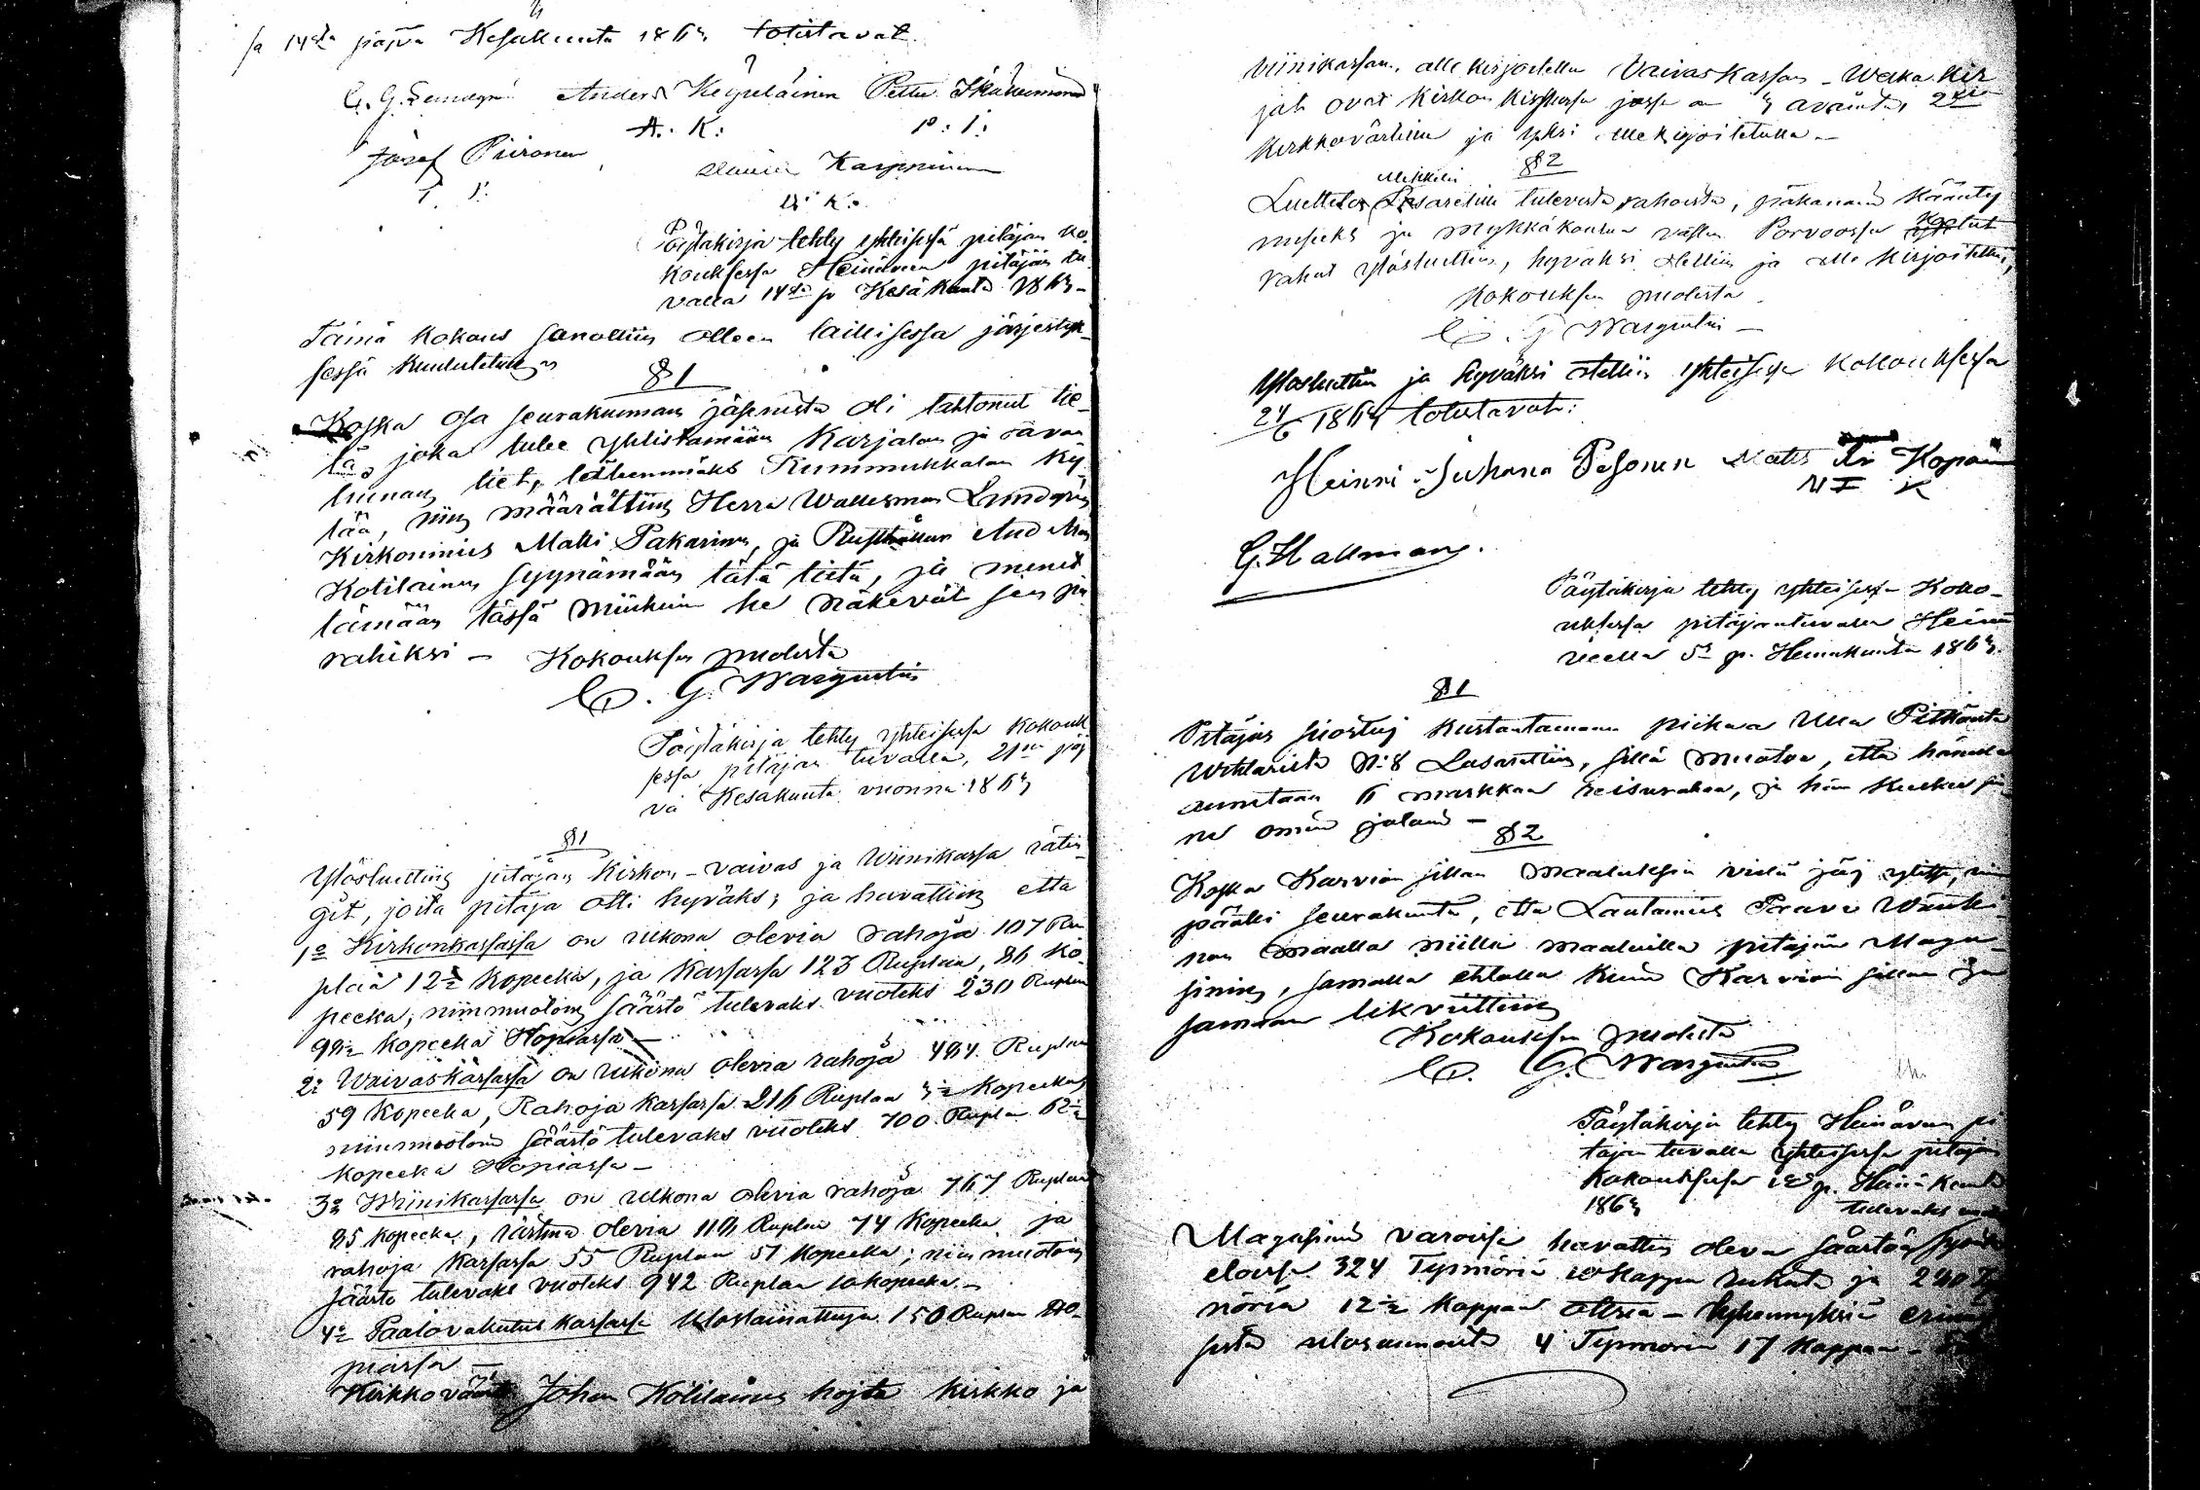 sa 14sta päivä Kesäkuuta 1863 totistavat
Anders Kejyeläinen Pettu Ikäheimonen
A. K: P: I:
Josef Piironen Karppinen
Pöytäkirja tehty yhteisessä pitäjän ko-
kouksessa Heinäveen pitäjän tu-
valla 14sta p Kesäkuuta 1863 -
Tämä kokous sanottiin olleen laillisessa järjestyk-
sessä kuulutetun
§ 1
Koska osa seurakunnan jäsenistä oli tahtonut tie-
tä, joka tulee yhdistämään Karjalan ja savon
tiet, lähemmäks Rummukkalan ky-
lää, niin määrättiin Herra Wallesman Lundqvist
Kirkonmies Matti Pakarinen, ja And
Kotilainen syynämään tätä tietä, ja menet-
tämään tässä niinkuin he näkevät sen pa
rahiksi - Kokouksen puolesta
C. G. Wargentin
Pöytäkirja tehty yhteisessä kokouk
sessa pitäjän tuvalla, 21nä päi
vä Kesäkuuta vuonna 1863
§ 1
Ylösluettiin pitäjän kirkon - vaivas ja Wiinikassa rätin-
git, joita pitäjä otti hyväks; ja havattiin että
1o Kirkonkassassa on ulkona olevia rahoja 107 Ru
plaa 12½ kopeekka, ja kassassa 123 Ruplaa, 86 ko-
peeka, niinmuotoin säästö tulevaks vuoteks 230 Ruplaa
98½ kopeeka Hopiassa -
2o Waivaskassassa on ulkona olevia rahoja 484 Ruplaa
59 kopeeka, Rahoja kassassa 216 Ruplaa 3½ kopeekka
niinmuotoin säästö tulevaks vuoteks 700 Ruplaa 62½
kopeeka Hopiassa -
3o Wiinikassassa on ulkona olevia rahoja 767 Ruplaa
85 kopeeka, rästinä olevia 118 Ruplaa 74 kopeeka ja
rahoja kassassa 55 Ruplaa 51 kopeeka; niin muotoin
säästö tulevaks vuoteks 942 Ruplaa 10 kopeeka -
4o Paalovakutus kassassa uloslainattuja 150 Ruplaa Ho-
piassa -
Kirkkovärti Johan Kotilainen hojta kirkko ja
viinikassan, allekirjoitettu Vaivaskassan - Waka kir
jat ovat kirkon kirstussa jossa on 3 avainta, 2
kirkkovärtillä ja yksi allekirjoitetulla -
§ 2
Mikkelin
Luettelot Lasaretille tulevista rahoista, pakanain kääntymiseks ja mykkäkoulua vasten Porvoossa
rahat ylösluettiin, hyväksi otettiin ja alle kirjoitettiin,
Kokouksen puolesta
C. G Wargentin -
Ylösluettiin ja hyväksi otettiin yhteisessä kokouksessa
24/6 1863 totistavat:
Heinri Juhana Pesonen Matts Kopoin
G. Hallman.
Pöytäkirja tehty yhteisessä Koko-
uksessa pitäjäntuvalla Heinä
veella 5 p. Heinäkuuta 1863.
§ 1
Pitäjäs suostui kustantamaan piikaa Ulla Pitkäistä
Wihtarista No 8 Lasarettiin, sillä muotoa, että hänelle
annetaan 6 markkaa reisurahaa, ja hän kulkee sin
ne omin jaloin -
§ 2
Koska Karvion sillan maaluksesta vielä jäi ylitse, niin
päätti seurakunta, että Lautamies Paavo
nen maalla niillä maaluilla pitäjän Maga-
siinin, samalla ehtolla kuin Karvion sillan
samaan likviittiin
Kokouksen puolesta
C. G. Wargentin
Pöytäkirja tehty Heinäveen pi
täjän tuvalla yhteisessä pitäjän
kokouksessa p. Heinäkuuta
1863 tulevaks
Magasiinin varoissa havattiin oleva säästöä
eloissa 324 Tynnöriä kappaa rukiita ja
nöriä 12½ kappaa ohria - kymmyksiä
sestä ulosannosta 4 Tynnöriä 17 kappaa -